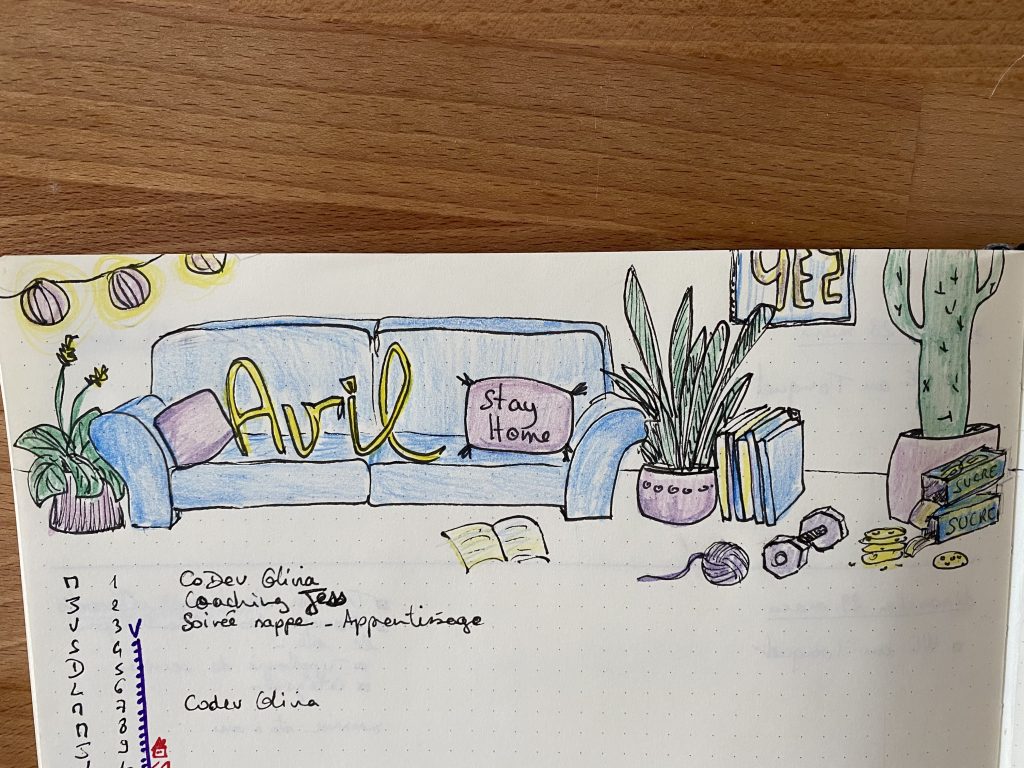 YEZ
Avril
Stay
Home
SUCRE
SUCRE
M 1 CoDev Olivia
J 2 Coaching Jess
V 3 Soirée nappe - Apprentissage
S 4
D 5
L 6
M 7 Codev Olivia
M 8
J 9